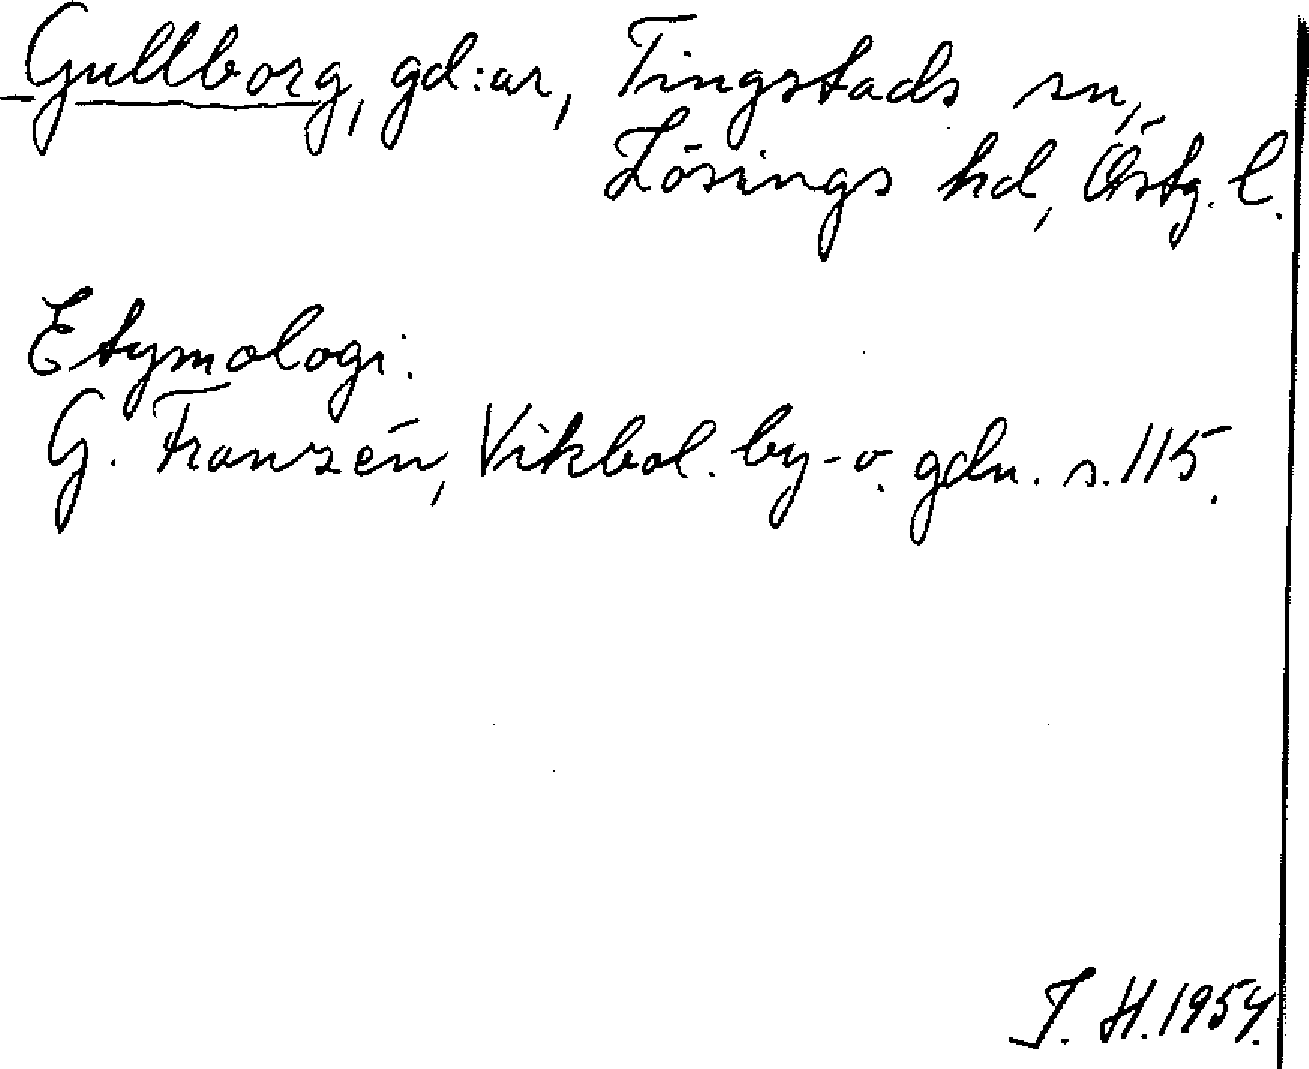 Gullborg, gd:ar, Tingstads sn,
Lösings hd, Östg. l.
Etymologi.
G. Franzén, Vikbol. by- o. gdn. s. 115.
J. H. 1954.